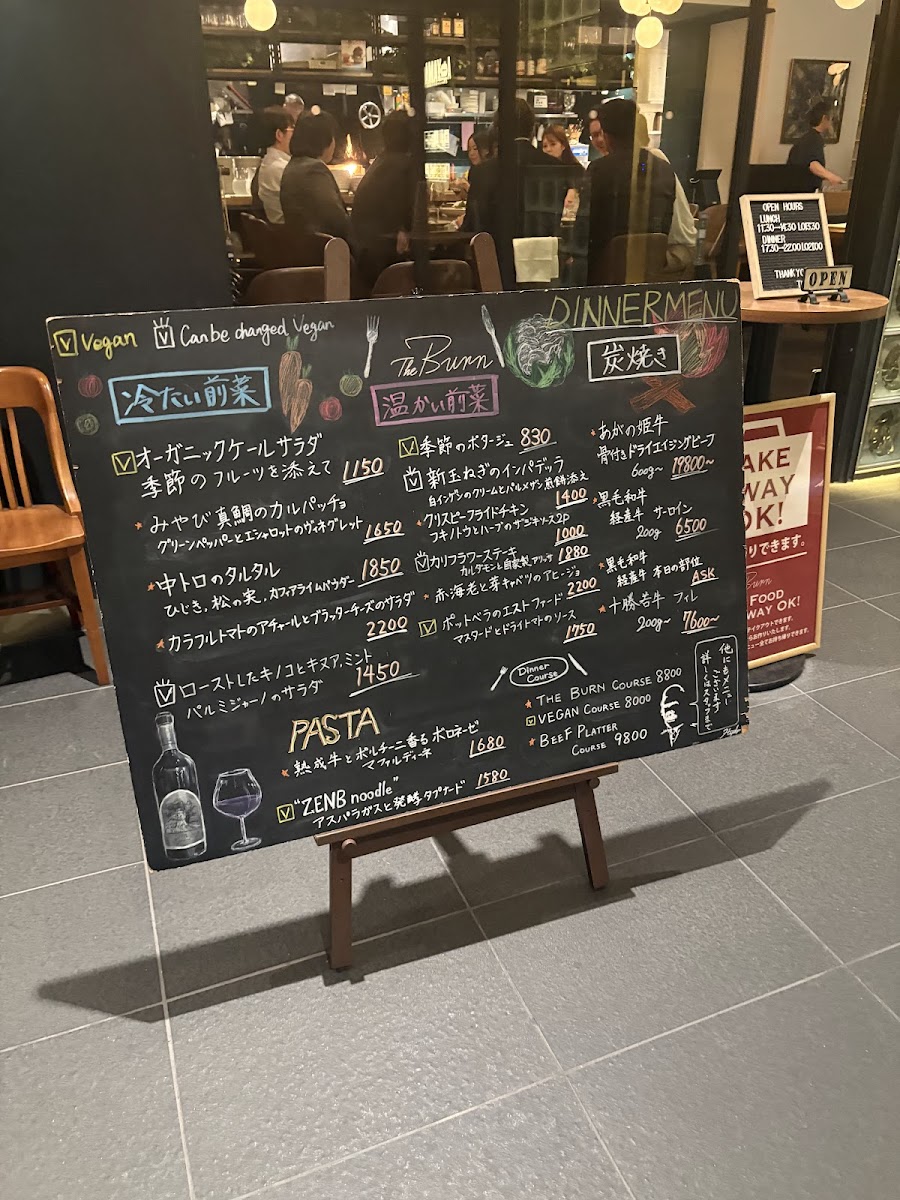 OPEN HOURS
LUNCH
11:30-14:30 LO13:30
DINNER
17:30-22:00 LO21:00
THANK YO
OPEN
DINNER MENU
V Vegan
V Can be changed Vegan
The Burn
冷たい前菜
V オーガニックケールサラダ
季節のフルーツを添えて 1150
みやび真鯛のカルパッチョ
グリーンペッパーとエシャロットのヴィネグレット 1650
中トロのタルタル 1850
ひじき、松の実、カフィアライムパウダー
カラフルトマトのアチャールとブラッターチーズのサラダ
2200
V ローストしたキノコとキヌア、ミント
パルミジャーノのサラダ 1450
温かい前菜
V 季節のポタージュ 830
V 新玉ねぎのインパデッラ
白インゲンのクリームとパルメザン煎餅添え
1400
クリスピーフライドチキン
フキノトウとハーブのサラミソース2P
1000
V カリフラワーステーキ
カルダモンと自家製アリッサ 1880
赤海老と芽キャベツのアヒージョ
2200
V ポットベラのエストファード
マスタードとドライトマトのソース
1750
炭焼き
あがの姫牛
骨付きドライエイジングビーフ
600g~ 19800~
黒毛和牛
経産牛 サーロイン
200g 6500
黒毛和牛
経産牛 本日の部位
ASK
十勝若牛 フィレ
200g~ 7600~
PASTA
熟成牛とポルチーニ香るボロネーゼ
マファルディーネ 1680
V "ZENB noodle" 1580
アスパラガスと発酵タプナード
Dinner
Course
THE BURN COURSE 8800
V VEGAN COURSE 8000
BEEF PLATTER
COURSE 9800
他にもメニュー
ございます
詳しくはスタッフまで
AKE
WAY
OK!
りできます。
Burn
FOOD
WAY OK!